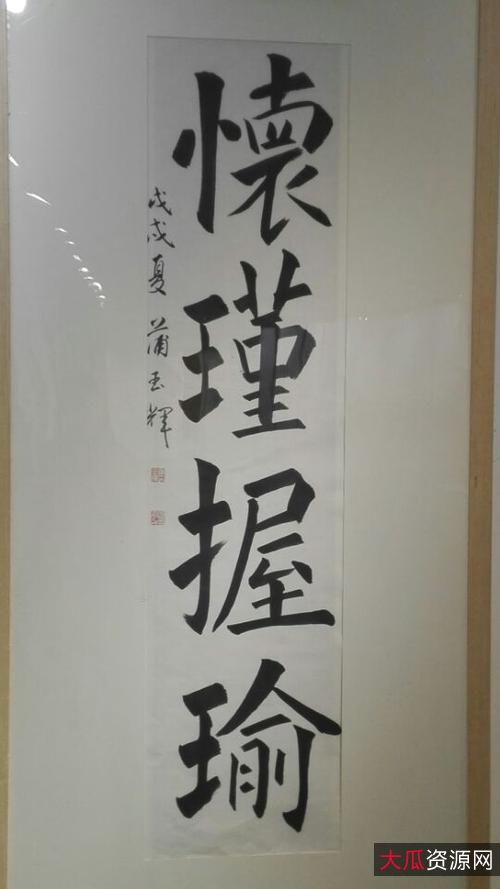 懷瑾握瑜
戊戌夏 蒲玉輝
大瓜资源网